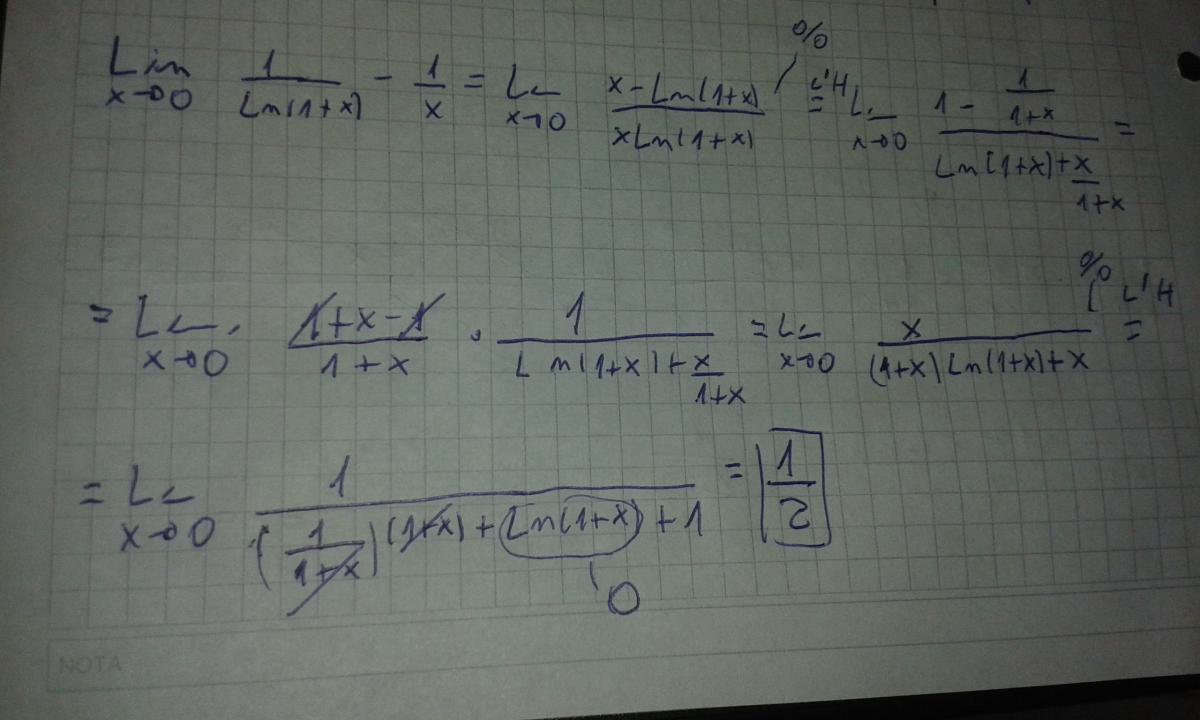 Lim x→0 1/Ln(1+x) - 1/x = Lim x→0 (x-Ln(1+x))/(xLn(1+x)) 0/0 L'H = Lim x→0 (1 - 1/(1+x))/(Ln(1+x)+x/(1+x)) =
= Lim x→0 (1+x-1)/(1+x) · 1/(Ln(1+x)+x/(1+x)) = Lim x→0 x/((1+x)Ln(1+x)+x) 0/0 L'H =
= Lim x→0 1/((1/(1+x))(1+x)+Ln(1+x)+1) = 1/2
0
NOTA